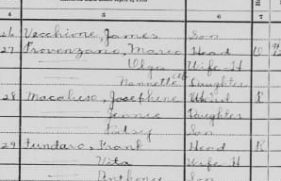 4 5 6 7
26 Vecchione, James Son
27 Provenzano, Marco Head O
Olga Wife H
Nannette Daughter
28 Macaluso, Josephine Head R
Jennie Daughter
Patsy Son
29 Tundaro, Frank Head R
Vita Wife H
Anthony Son